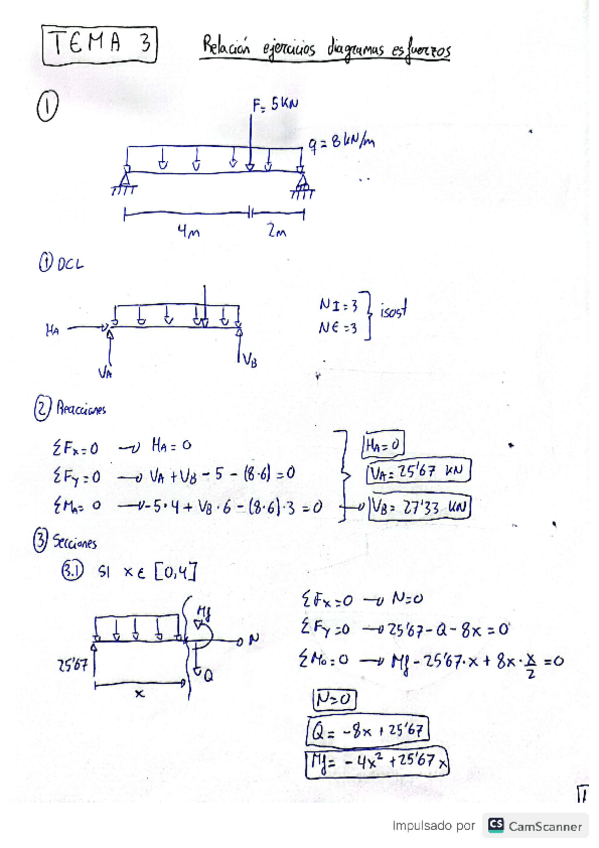 TEMA 3
Relación ejercicios diagramas esfuerzos
①
F= 5 KN
q = 8 kN/m
4m
2m
① DCL
HA
VA
VB
NI=3
NE=3
isost
② Reacciones
ΣFx=0 → HA=0
ΣFy=0 → VA + VB - 5 - (8·6) = 0
ΣMA=0 → -5·4 + VB·6 - (8·6)·3 = 0
HA=0
VA= 25'67 KN
VB= 27'33 KN
③ Secciones
3.1 SI x ∈ [0,4]
Mf
N
25'67
Q
x
ΣFx=0 → N=0
ΣFy=0 → 25'67 - Q - 8x = 0
ΣMo=0 → Mf - 25'67·x + 8x·x/2 = 0
N=0
Q = -8x + 25'67
Mf = -4x² + 25'67x
1
Impulsado por CS CamScanner